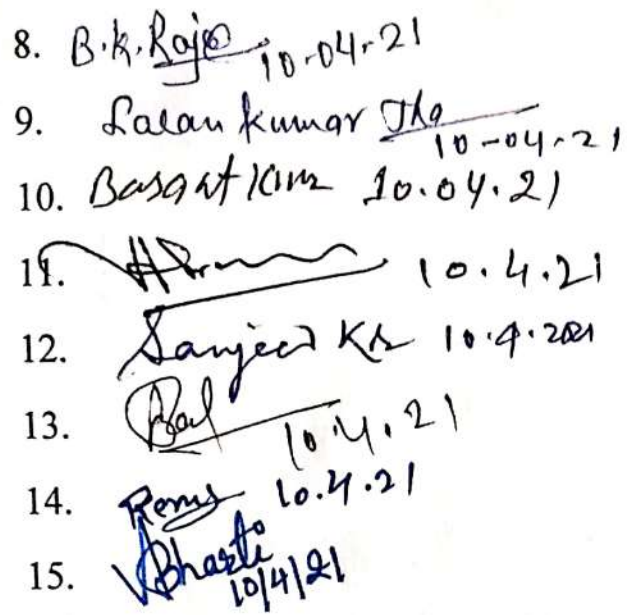 8. B.K. Raja 10-04-21
9. Lalan Kumar Jha 10-04-21
10. Basant Kumar 10.04.21
11. 10.4.21
12. Sanjeev Kr 10.4.2021
13. 10.4.21
14. Renu 10.4.21
15. Bharti 10/4/21